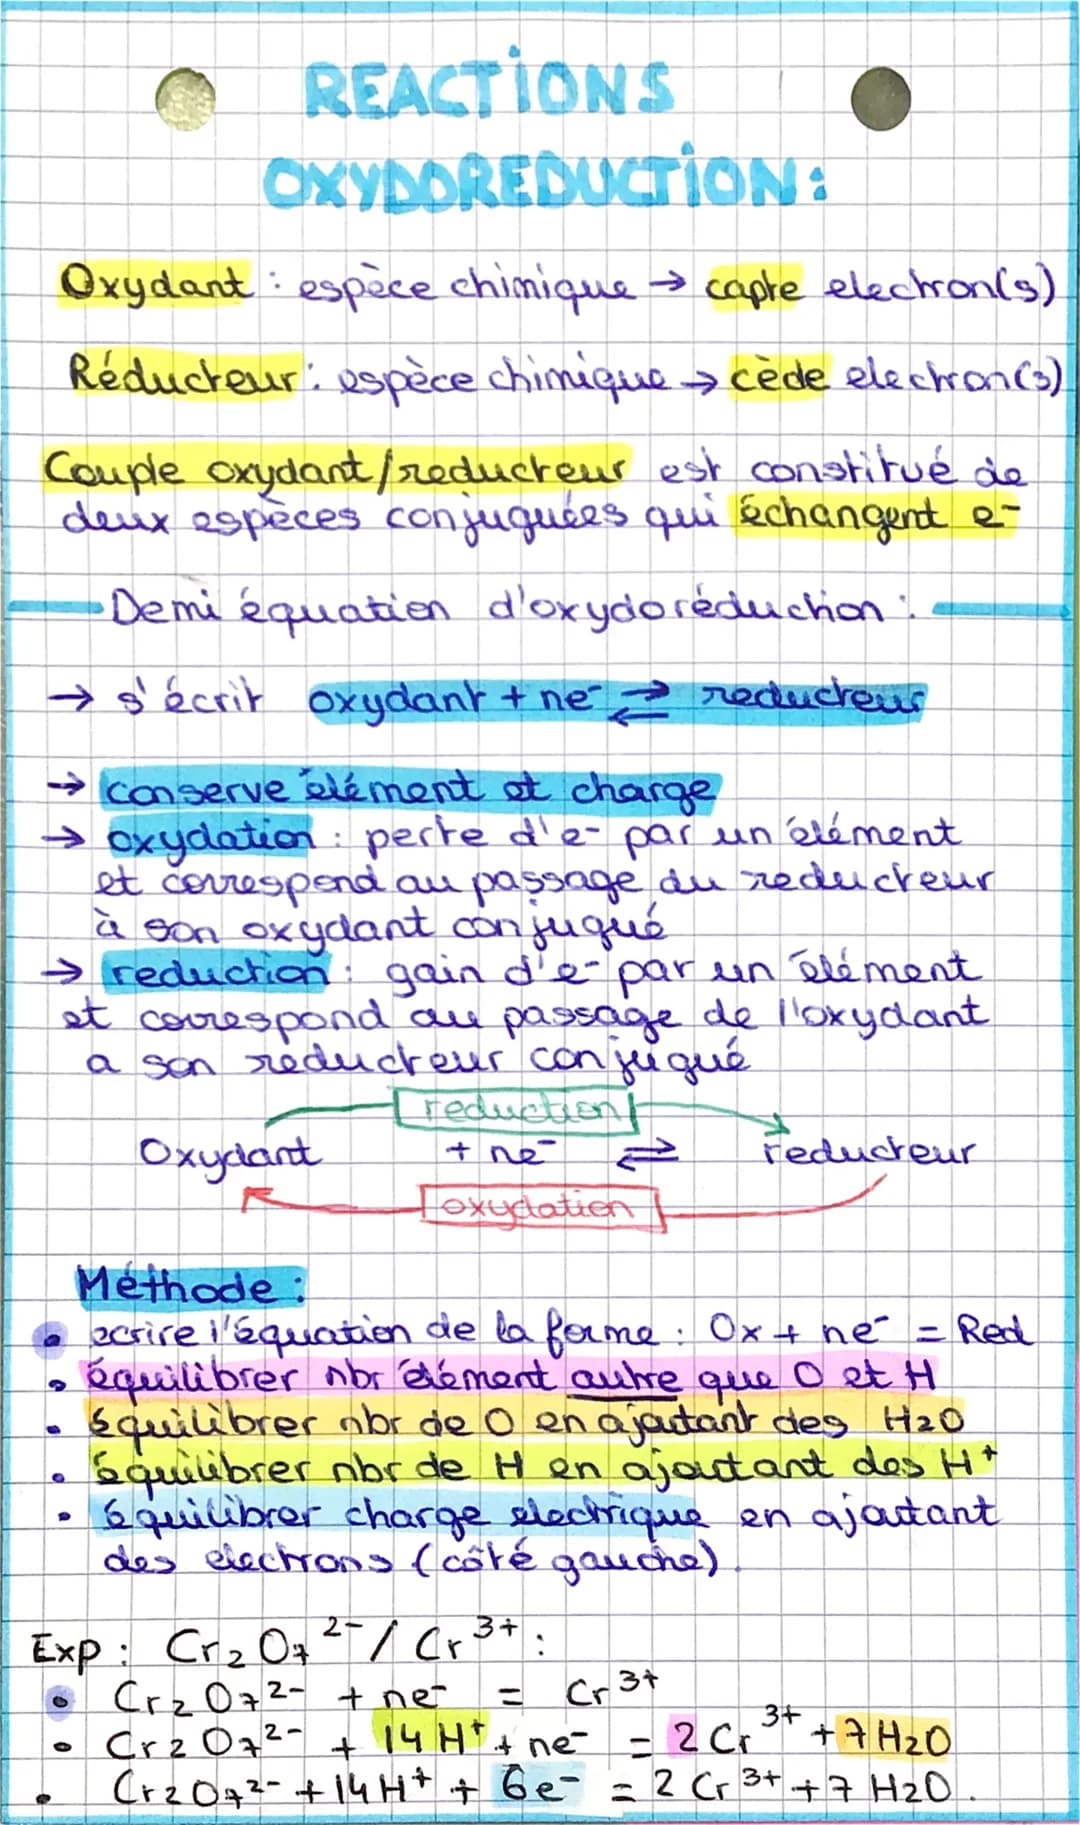 REACTIONS
OXYDOREDUCTION:
Oxydant : espèce chimique → capte electron(s)
Réducteur : espèce chimique → cède electron(s)
Couple oxydant/reducteur est constitué de
deux espèces conjuguées qui échangent e-
Demi équation d'oxydoréduction :
→ s'écrit oxydant + ne⁻ ⇄ reducteur
→ conserve élément et charge
→ oxydation : perte d'e- par un élément
et correspond au passage du reducteur
à son oxydant conjugué
→ reduction : gain d'e- par un élément
et correspond au passage de l'oxydant
a son reducteur conjugué
reduction
Oxydant + ne⁻ ⇄ reducteur
oxydation
Méthode :
• ecrire l'équation de la forme : Ox + ne⁻ = Red
• équilibrer nbr élément autre que O et H
• équilibrer nbr de O en ajoutant des H2O
• équilibrer nbr de H en ajoutant des H⁺
• équilibrer charge electrique en ajoutant
des electrons (côté gauche).
Exp : Cr₂O₇²⁻ / Cr³⁺ :
• Cr₂O₇²⁻ + ne⁻ = Cr³⁺
• Cr₂O₇²⁻ + 14H⁺ + ne⁻ = 2Cr³⁺ + 7H₂O
• Cr₂O₇²⁻ + 14H⁺ + 6e⁻ = 2Cr³⁺ + 7H₂O.